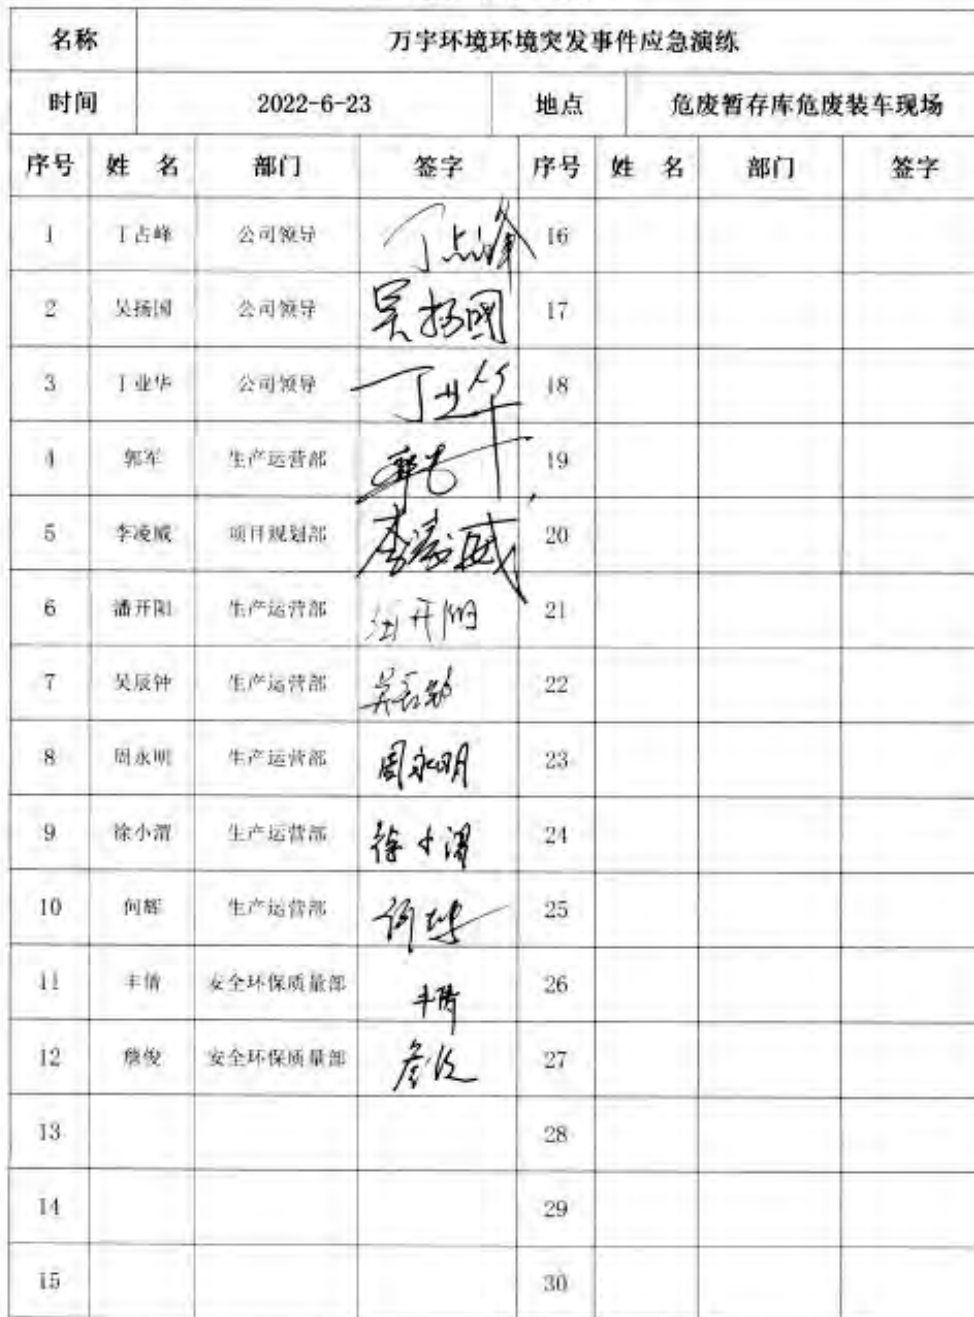 名称 万宇环境环境突发事件应急演练
时间 2022-6-23 地点 危废暂存库危废装车现场
序号 姓 名 部门 签字 序号 姓 名 部门 签字
1 丁占峰 公司领导 丁占峰 16
2 吴扬国 公司领导 吴扬国 17
3 丁业华 公司领导 丁业华 18
4 郭军 生产运营部 19
5 李凌威 项目规划部 李凌威 20
6 潘开阳 生产运营部 开阳 21
7 吴辰钟 生产运营部 吴辰钟 22
8 周永明 生产运营部 周永明 23
9 徐小渭 生产运营部 徐小渭 24
10 何辉 生产运营部 何辉 25
11 丰倩 安全环保质量部 丰倩 26
12 詹俊 安全环保质量部 詹俊 27
13 28
14 29
15 30